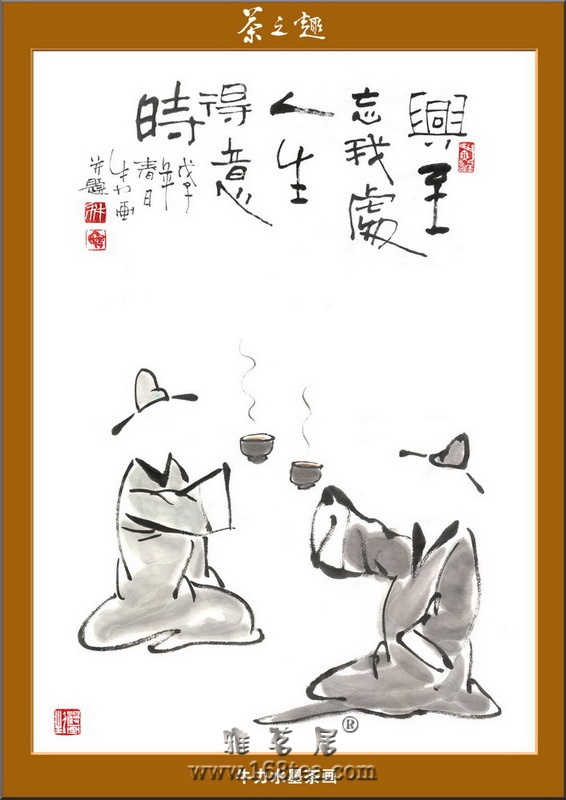 茶之趣
興至
忘我處
人生
得意
時
戊子年
春日
牛力画
并題
雅茗居®
www.168tea.com
牛力水墨茶画